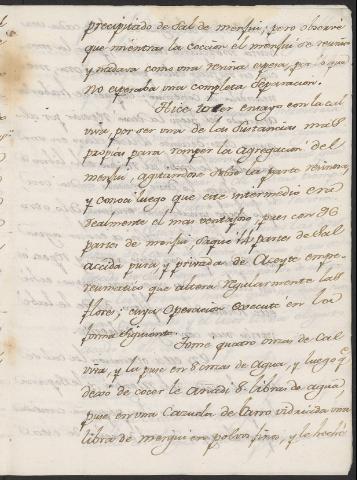 precipitado de Sal de menjui, pero observè
que mientras la coccion el menjui se reunia
y nadava como una resina espesa, por lo que
no esperaba una completa Separacion.
Hice tercer ensayo con la cal
viva, por ser una de las sustancias mas
propias para romper la agregacion del
menjui, agitandose sobre la parte resinosa,
y conocì luego que este intermedio era
realmente el mas ventajoso, pues con 96
partes de menjui, saquè 14 partes de Sal
accida pura y privada de Aceyte empi-
reumatico que altera regularmente las
flores; cuya operacion executè en la
forma siguiente.
Tome quatro onzas de Cal
viva, y la puse en 8 onzas de Agua, y luego qe
dexò de cocer le añadì 8 libras de agua,
puse en una Cazuela de barro vidriada una
libra de menjui en polvos finos, y le hechè